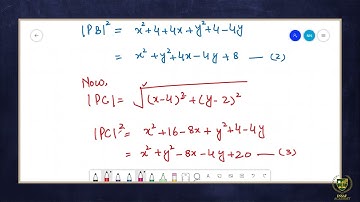 |PB|² = x²+4+4x+y²+4-4y
= x²+y²+4x-4y+8 — (2)
Now,
|PC| = √((x-4)²+(y-2)²)
|PC|² = x²+16-8x+y²+4-4y
= x²+y²-8x-4y+20 — (3)